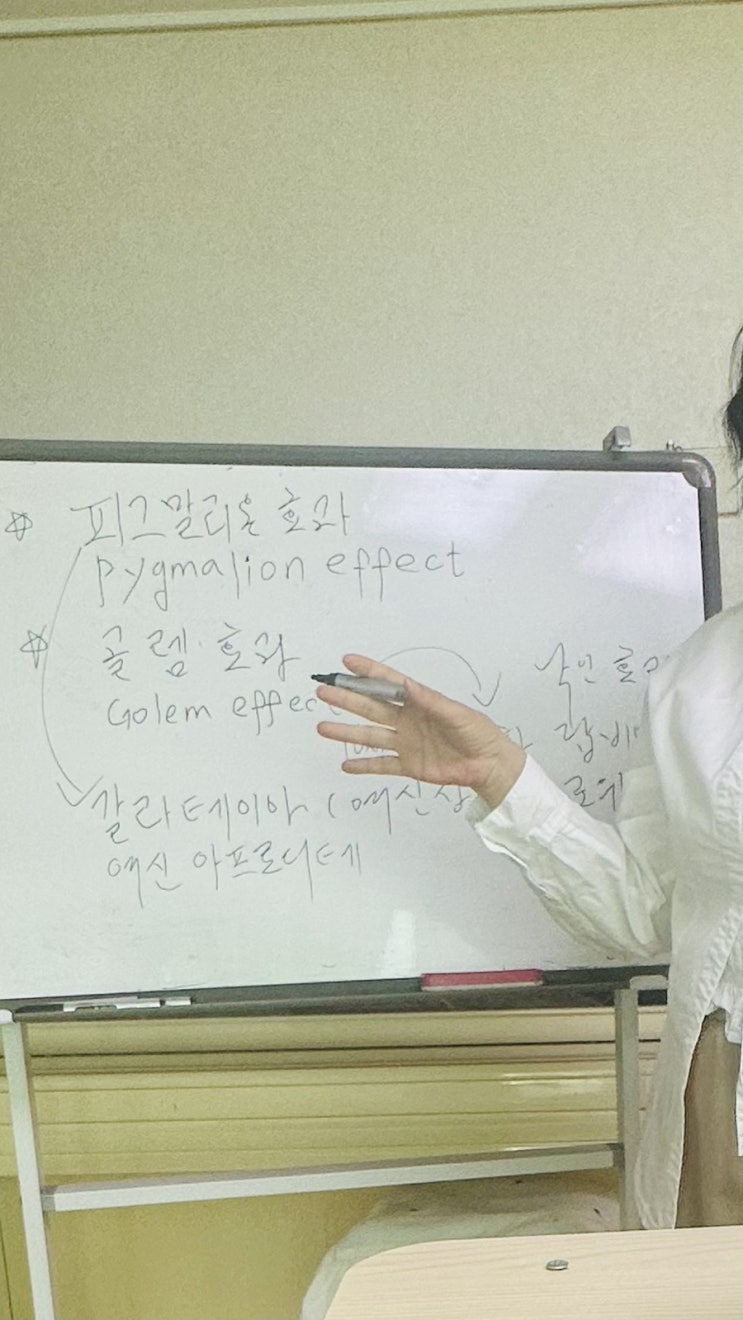 ☆ 피그말리온 효과
pygmalion effect
☆ 골렘 효과
Golem effec
낙인 효과
랍비
갈라테이아 (여신상
여신 아프로디테